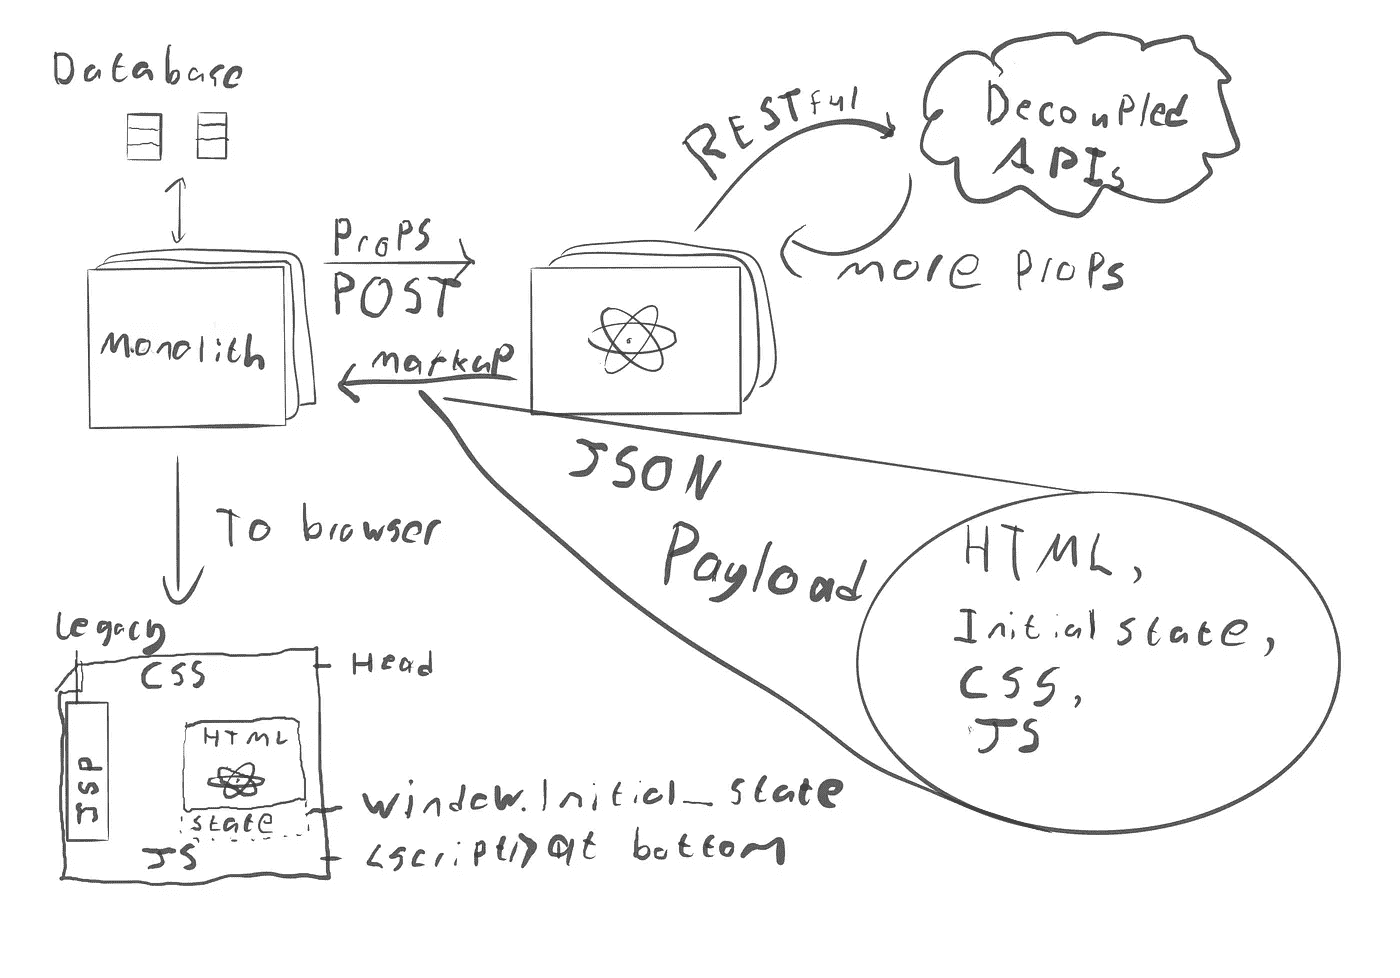 Database
RESTful
Decoupled
APIs
Props
POST
more props
Monolith
markup
JSON
Payload
HTML,
Initial state,
CSS,
JS
To browser
Legacy
CSS
Head
HTML
JSP
window.Initial_state
state
JS
<script/> at bottom